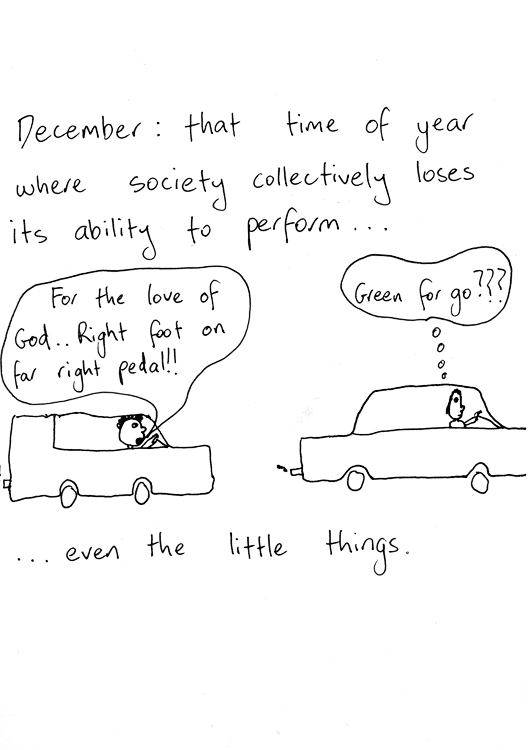 December: that time of year
where society collectively loses
its ability to perform...
For the love of
God.. Right foot on
far right pedal!!!
Green for go???
... even the little things.